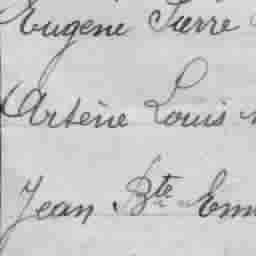 Eugène Pierre
Arsène Louis
Jean Bte